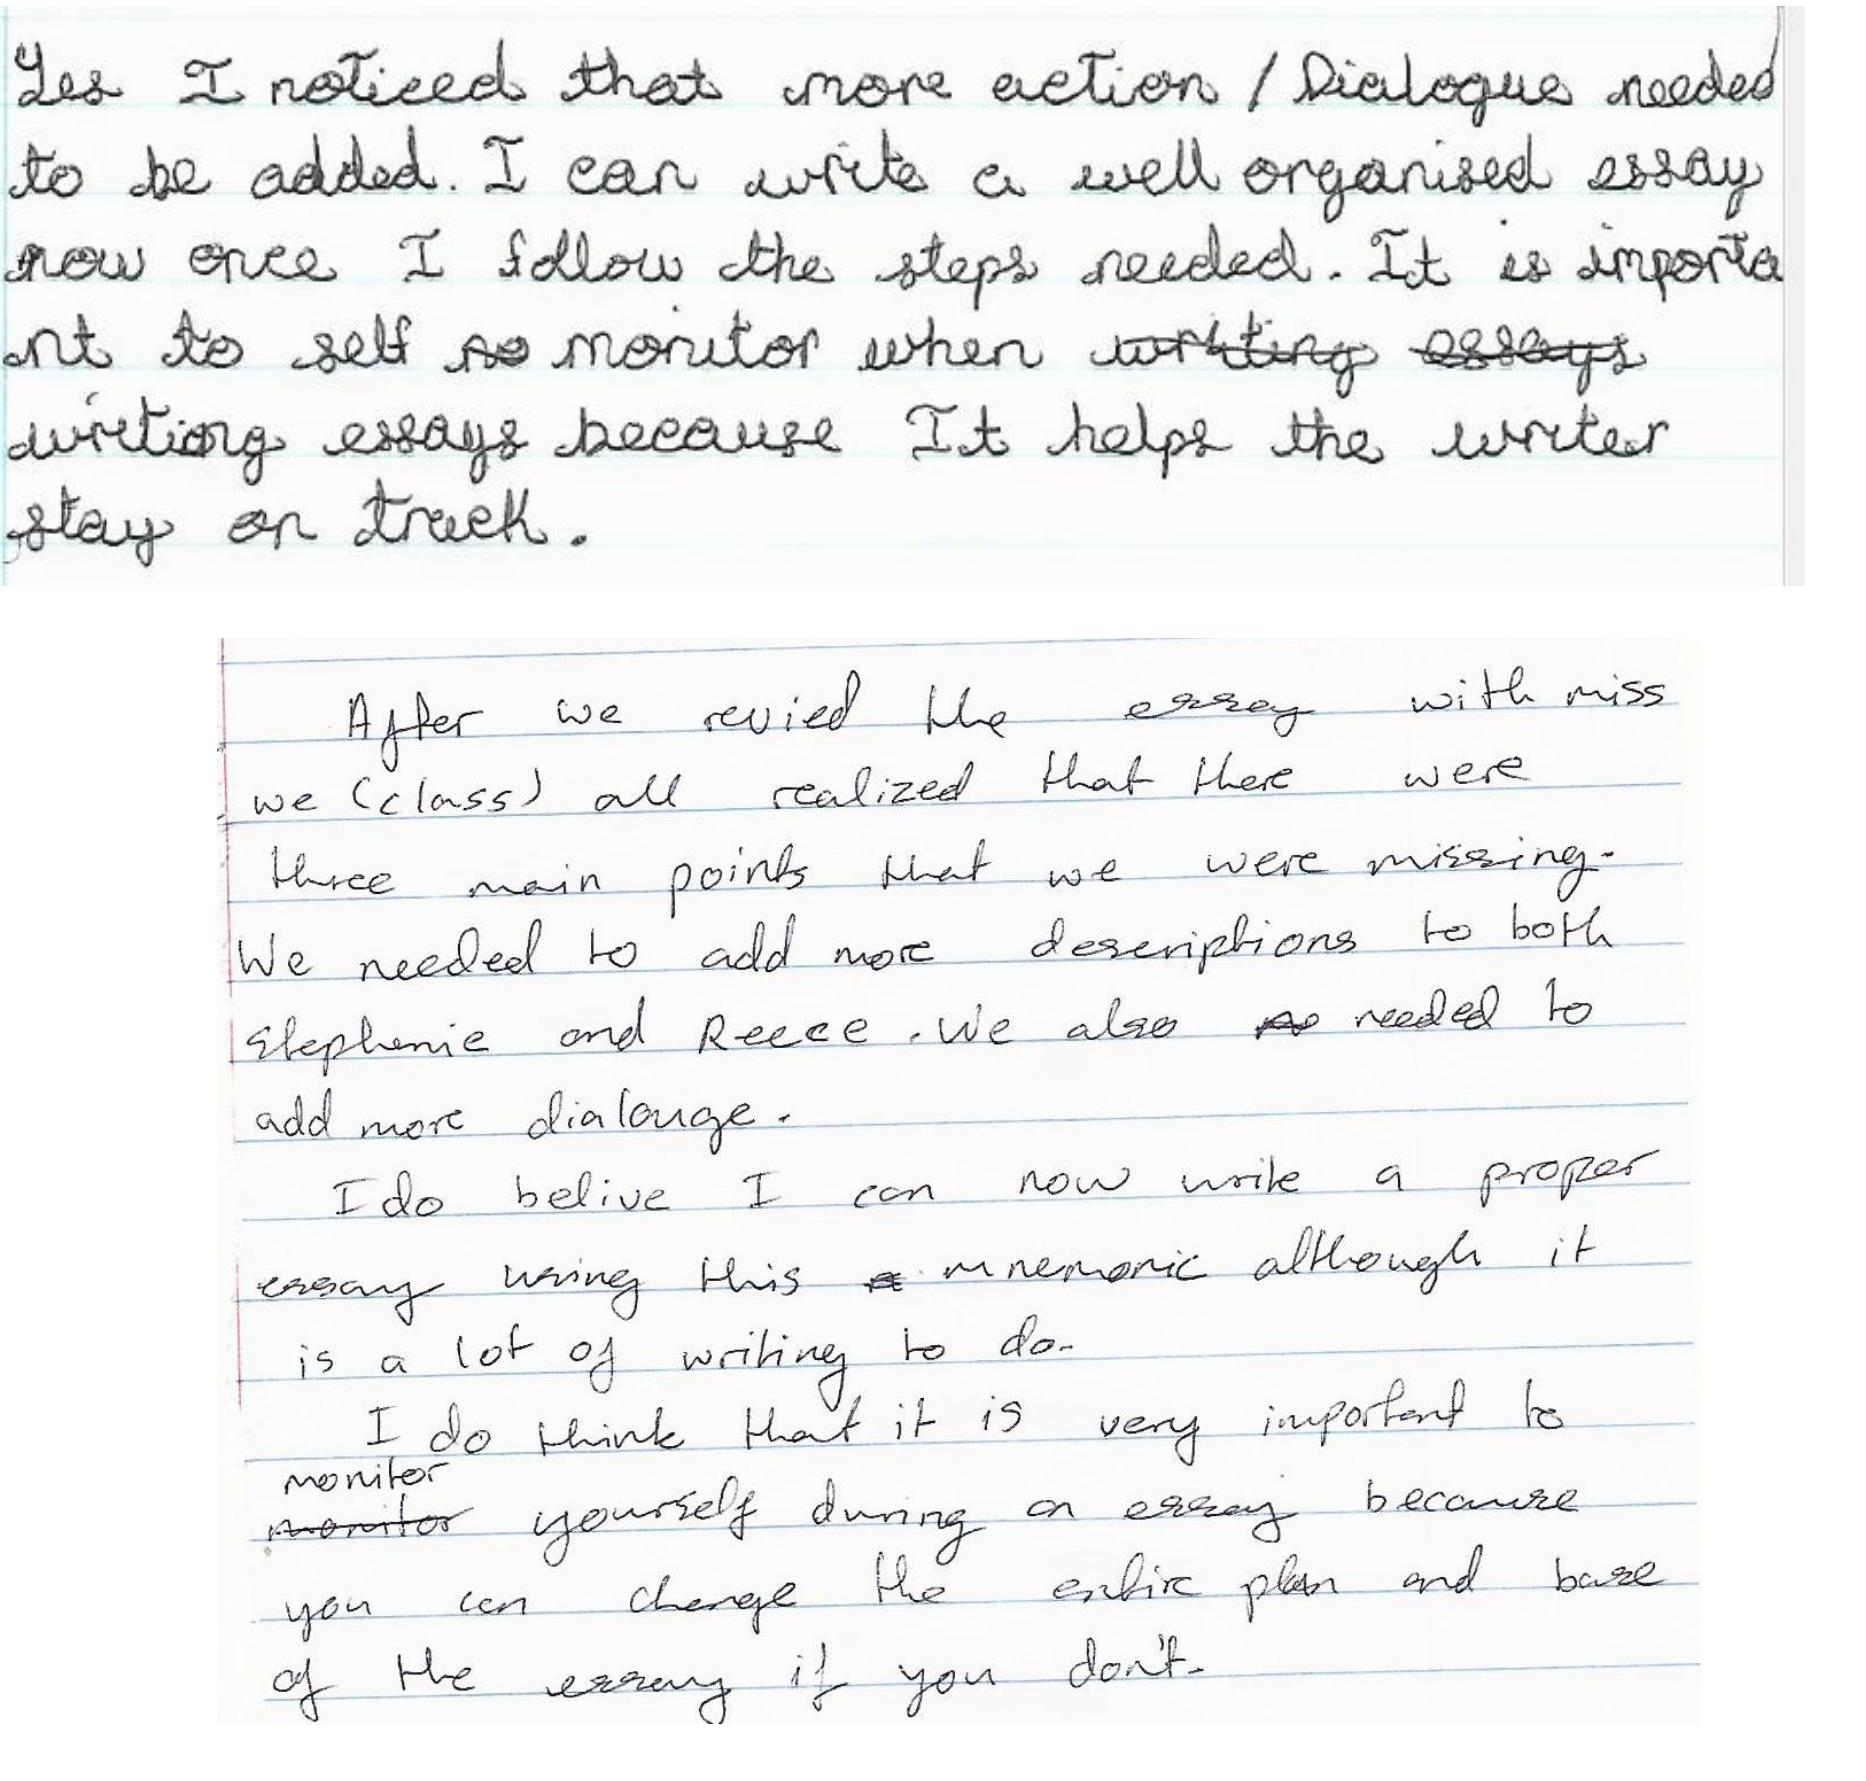 Yes I noticed that more action / Dialogue needed
to be added. I can write a well organised essay
now once I follow the steps needed. It is importa
nt to self no monitor when writing essays
writiong essays because It helps the writer
stay on track.
After we revied the essay with miss
we (class) all realized that there were
three main points that we were missing.
We needed to add more descriptions to both
Stephenie and Reece. We also needed to
add more dialouge.
I do belive I can now write a proper
essay using this a mnemonic although it
is a lot of writing to do.
I do think that it is very important to
monitor
monitor yourself during an essay because
you can change the entire plan and base
of the essay if you don't.